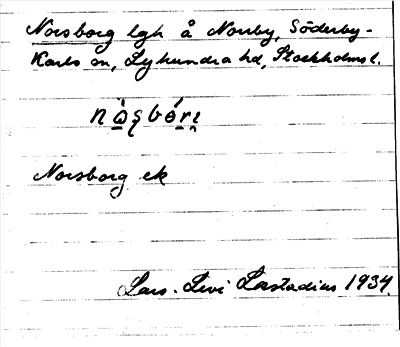 Norsborg lgh å Norrby, Söderby-
Karls sn, Lyhundra hd, Stockholms l.
Norsborg ek
Lars. Levi Læstadius 1934.